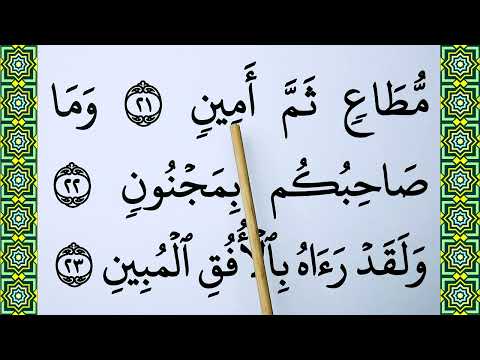 مُّطَاعٍ ثَمَّ أَمِينٍ ٢١ وَمَا
صَاحِبُكُم بِمَجْنُونٍ ٢٢
وَلَقَدْ رَءَاهُ بِٱلْأُفُقِ ٱلْمُبِينِ ٢٣